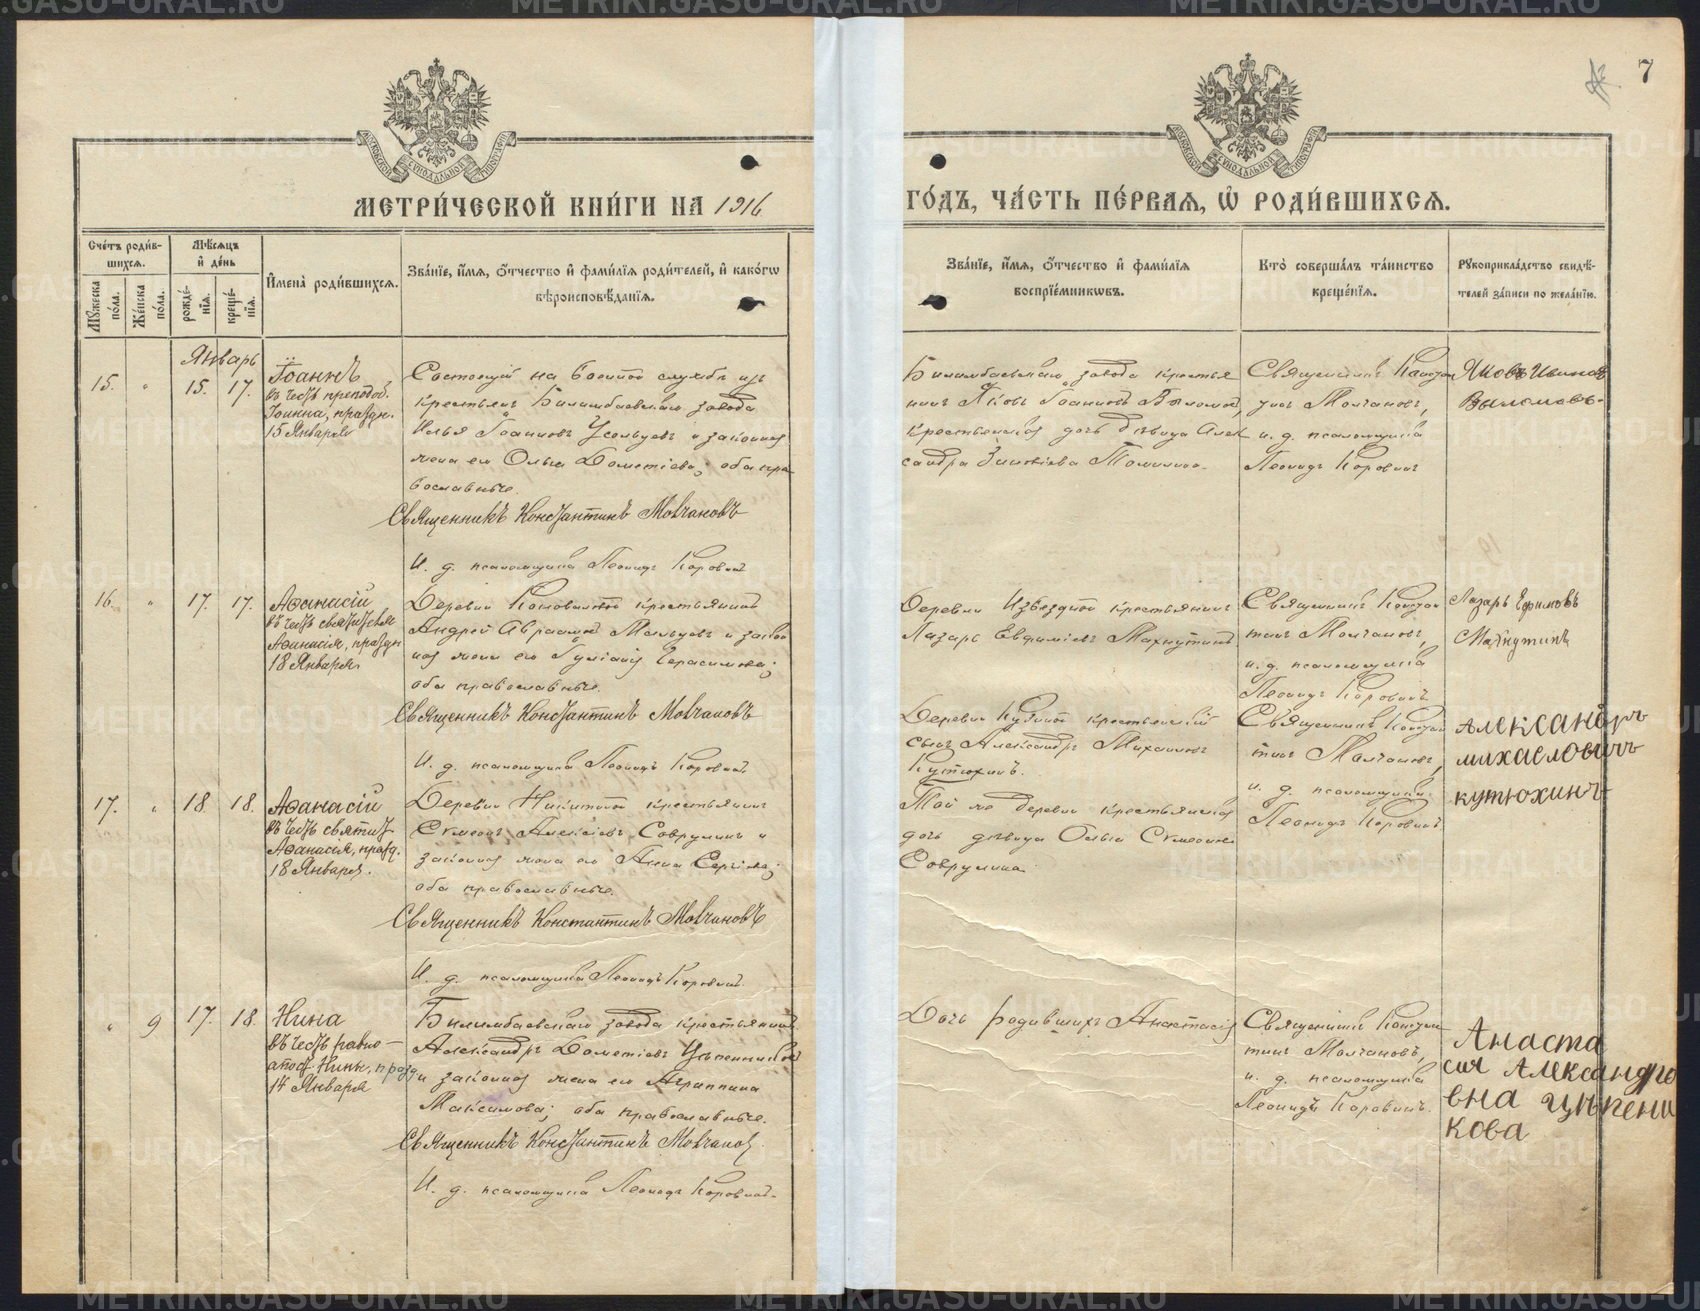 7
МЕТРИ́ЧЕСКОЙ КНИ́ГИ НА 1916
ГО́ДЪ, ЧА́СТЬ ПЕ́РВАЯ, Ѽ РОДИ́ВШИХСЯ.
Сче́тъ роди́в-
шихся.
Мꙋжеска
по́ла.
Же́нска
по́ла.
Мѣ́сяцъ
и҆ де́нь
рожде́-
нїя.
креще́-
нїя.
И҆мена̀ роди́вшихся.
Зва́нїе, и҆́мя, ѻ҆́тчество и҆ фами́лїя роди́телей, и҆ како́гѡ
вѣроисповѣ́данїя.
Зва́нїе, и҆́мя, ѻ҆́тчество и҆ фами́лїя
воспрїе́мникѡвъ.
Кто̀ соверша́лъ та́инство
креще́нїя.
Рꙋкоприкла́дство свидѣ́-
телей за́писи по жела́нїю.
Январь
15.
15. 17.
Іоаннъ
въ честь преподоб.
Іоанна, праздн.
15 Января
Состоящій на военной службѣ изъ
крестьянъ Билимбаевскаго завода
Илья Іоанновъ Усольцевъ и законная
жена его Ольга Дометіева; оба пра
вославные.
Священникъ Константинъ Молчановъ
И. д. псаломщика Леонидъ Коровинъ
Билимбаевскаго завода крестья
нинъ Яковъ Іоанновъ Выломовъ,
крестьянская дочь дѣвица Алек
сандра Зиновіева
Священникъ Констан
тинъ Молчановъ,
и. д. псаломщика
Леонидъ Коровинъ
Яковъ Ивановъ
Выломовъ
16.
17. 17.
Аѳанасій
въ честь святителя
Аѳанасія, праздн
18 Января
Деревни Коноваловой крестьянинъ
Андрей Авраамовъ Мальцевъ и закон
ная жена его Іуліанія Герасимова;
оба православные.
Священникъ Константинъ Молчановъ
И. д. псаломщика Леонидъ Коровинъ
Деревни Извѣздной крестьянинъ
Лазарь Евфиміевъ Махнутинъ
Священникъ Констан
тинъ Молчановъ,
и. д. псаломщика
Леонидъ Коровинъ
Лазарь Ефимовъ
Махнутинъ
17.
18 18.
Аѳанасій
въ честь святит.
Аѳанасія, празд.
18 Января.
Деревни Никитиной крестьянинъ
Сѵмеонъ Алексіевъ Совруминъ и
законная жена его Анна Сергіева;
оба православные.
Священникъ Константинъ Молчановъ
И. д. псаломщика Леонидъ Коровинъ.
Деревни крестьянскій
сынъ Александръ Михаиловъ
Кутюхинъ.
Той же деревни крестьянская
дочь дѣвица Ольга Сѵмеонова
Соврумина
Священникъ Констан
тинъ Молчановъ,
и. д. псаломщика
Леонидъ Коровинъ.
Александръ
михаеловичъ
кутюхинъ
9
17. 18.
Нина
въ честь равно-
апост. Нины, празд
14 Января
Билимбаевскаго завода крестьянинъ
Александръ Дометіевъ Цѣпенниковъ
и законная жена его Агриппина
Максимова; оба православные.
Священникъ Константинъ Молчановъ
И. д. псаломщика Леонидъ Коровинъ.
Дочь родившихъ Анастасія
Священникъ Констан
тинъ Молчановъ,
и. д. псаломщика
Леонидъ Коровинъ.
Анаста
сия Александро
вна цѣпени
кова